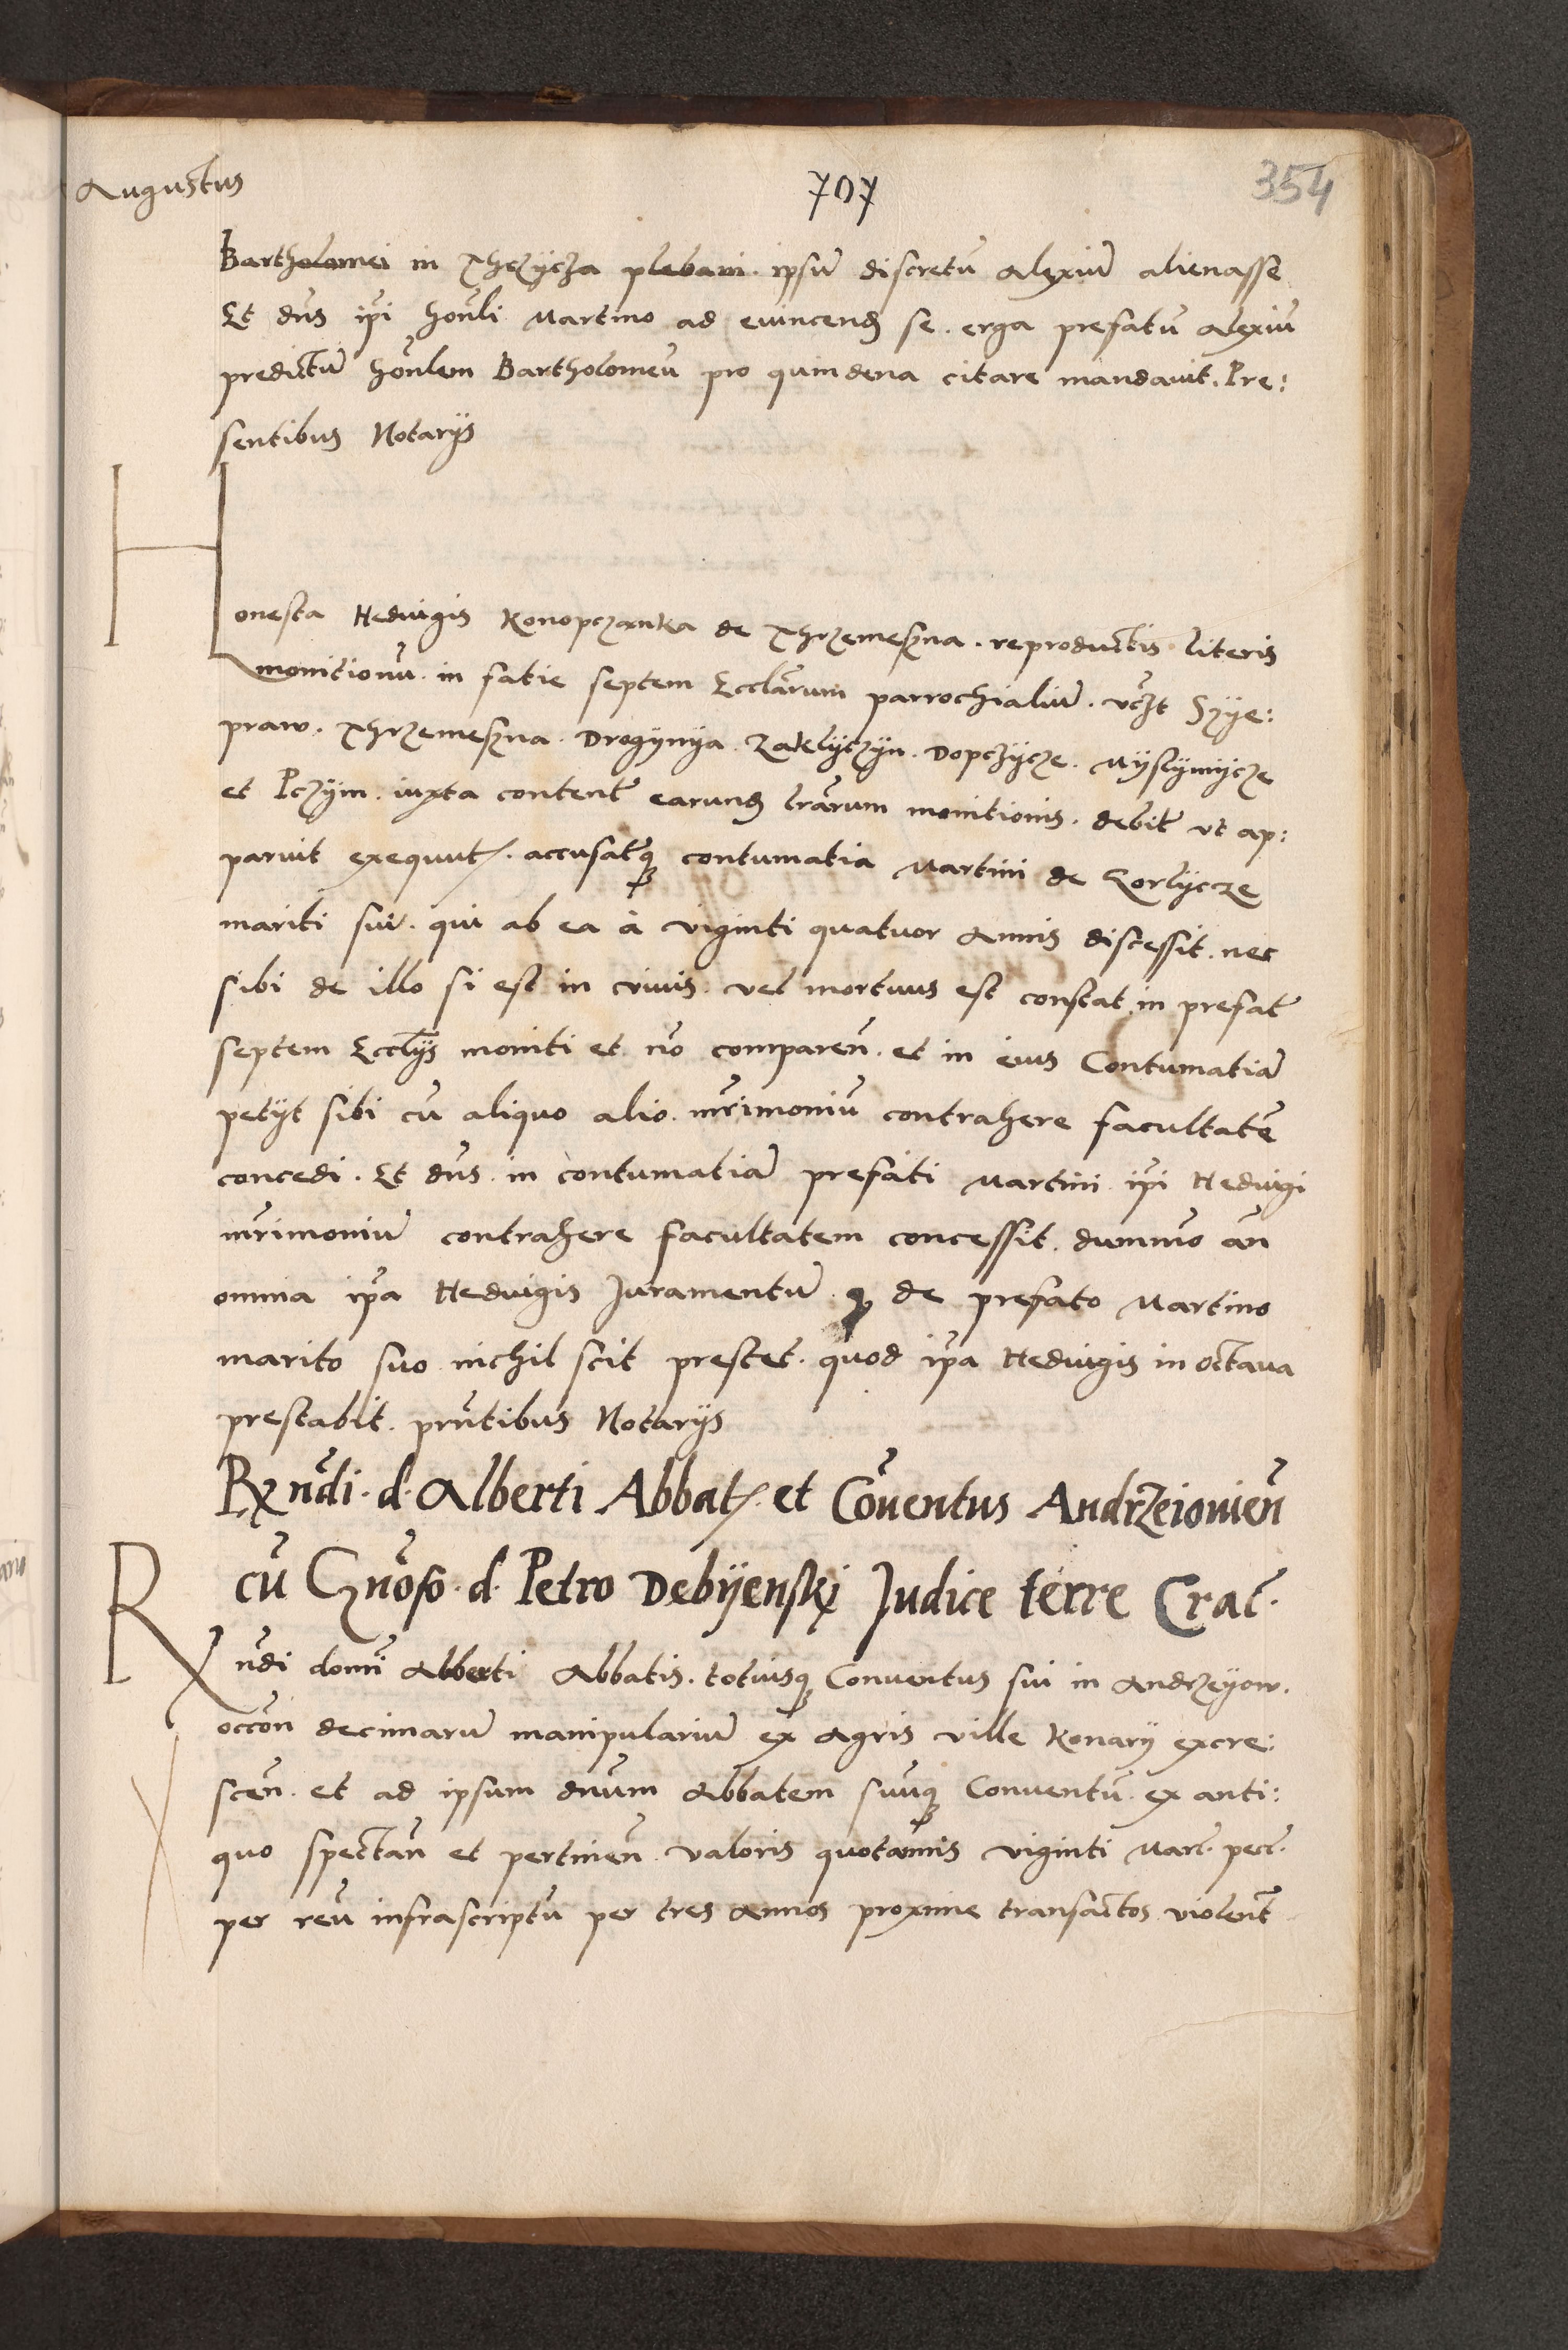 Augustus
707
354
Bartholomei in Thczycza plebani. ipsū discretū Alexiū alienasse
Et dn̄s ip̄i hon̄li Martino ad euincend se. erga prefatū Alexiū
predictū hon̄lem Bartholomeū pro quindena citare mandauit. Pre:
sentibus Notarijs
Honesta Heduigis Konopczanka de Thrzemeszna. reproductis literis
monitionū. in facie septem Eccl̄arum parrochialiū. vczt Szye:
praw. Thrzemeszna. Drogynya. Zaklyczyn. Dopczycze. Myslymycze
et Pczym. iuxta content̄ earund lr̄arum monitionis. debit̄ vt ap:
paruit exequut. accusatq contumatia Martini de Gorlycze
mariti sui. qui ab ea à viginti quatuor annis discessit. nec
sibi de illo si est in viuis. vel mortuus est constat in prefat̄
septem Eccl̄ijs moniti et nō comparen̄. et in eius Contumatiā
petijt sibi cū aliquo alio. mr̄imoniū contrahere facultatē
concedi. Et dn̄s. in contumatiā prefati Martini ip̄i Heduigi
mr̄imoniū contrahere facultatem concessit. dummō an̄
omnia ip̄a Heduigis Juramentū q de prefato Martino
marito suo nichil scit prestet. quod ip̄a Heduigis in octaua
prestabit. prn̄tibus Notarijs
Rx̄ nd̄i. d. Alberti Abbat. et Cōuentus Andrzeiouien̄
cū Gn̄oso. d. Petro Debyenskj Judice terre Crac̄.
Rx nd̄i domī Alberti Abbatis. totiusq Conuentus sui in Andrzeyow.
occōn decimarū manipulariū ex Agris ville Konary excre:
scen̄. et ad ipsum dn̄um Abbatem suūq Conuentū. ex anti:
quo spectan̄ et pertinen̄. valoris quotannis viginti Marc̄. pecc̄.
per reū infrascriptū per tres annos proxime transactos violent̄